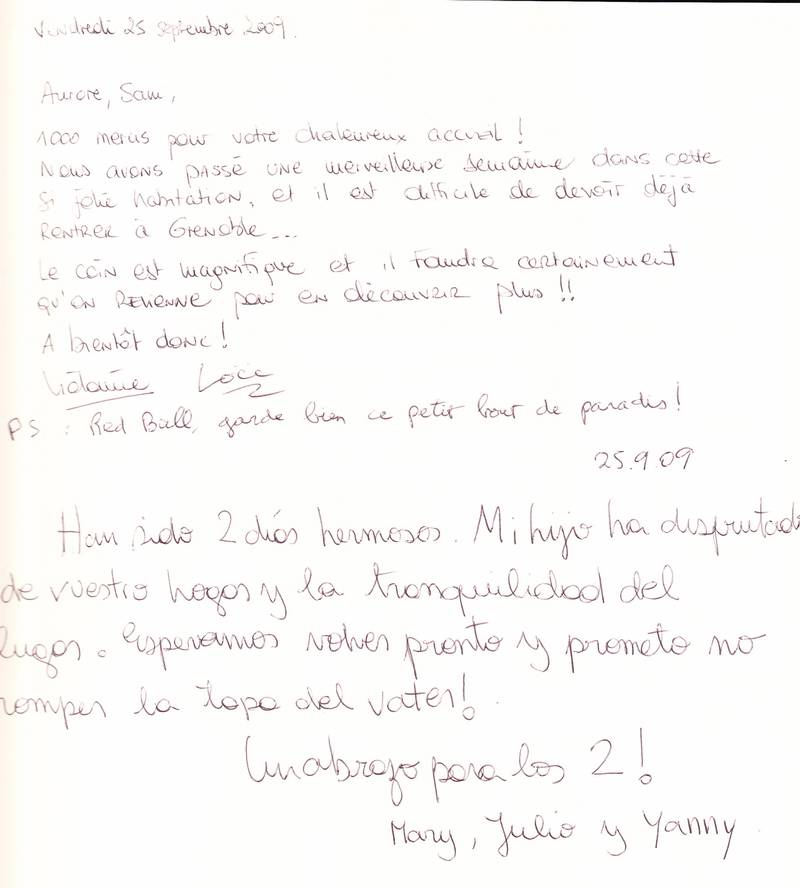 Vendredi 25 septembre 2009.
Aurore, Sam,
1000 mercis pour votre chaleureux accueil !
Nous avons passé une merveilleuse semaine dans cette
si jolie habitation, et il est difficile de devoir déjà
rentrer à Grenoble...
Le coin est magnifique et il faudra certainement
qu'on revienne pour en découvrir plus !!
A bientôt donc !
Loïc
PS : Red Bull, garde bien ce petit bout de paradis !
25.9.09
Han sido 2 días hermosos. Mi hijo ha disfrutad
de vuestro hogar y la tranquilidad del
lugar. Esperamos volver pronto y prometo no
romper la tapa del vater!
Un abrazo para los 2 !
Mary, Julio y Yanny